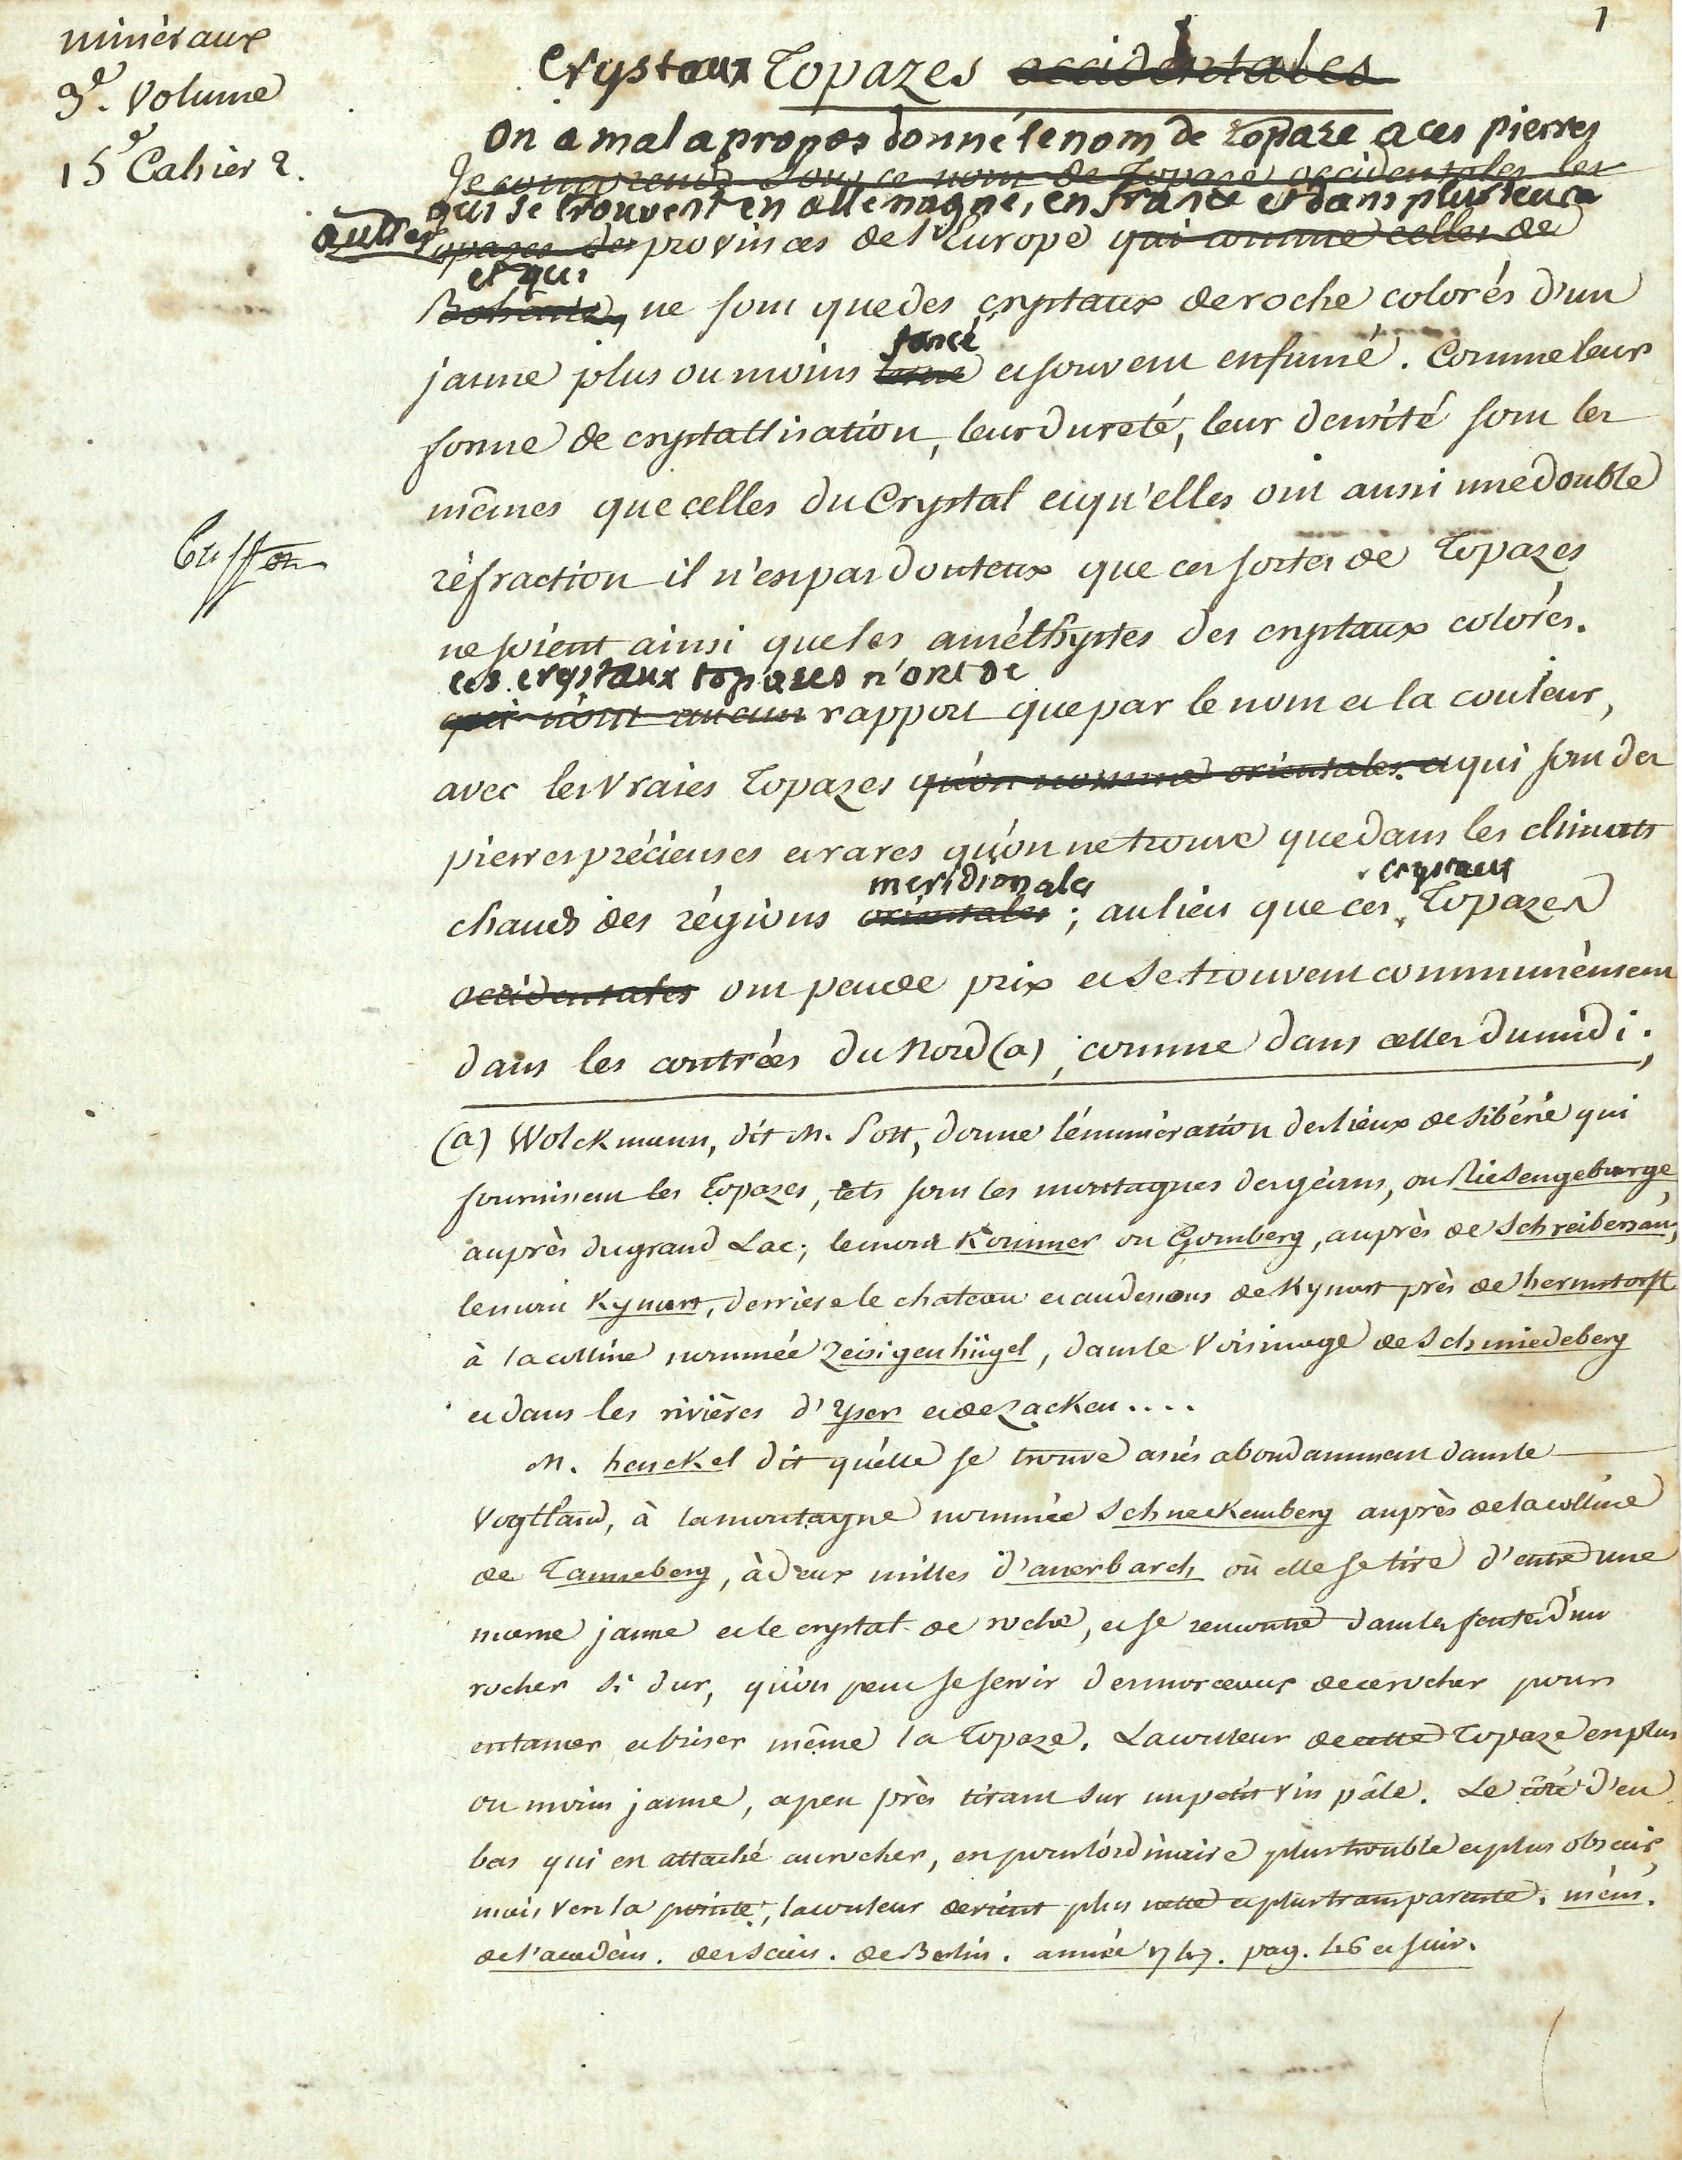 1
minéraux
3e. Volume
15e Cahier 2.
Crystaux Topazes occidentales
On a mal a propos donné le nom de topaze a ces pierres
Je comprends sous ce nom de Topaze occidentales les
qui se trouvent en allemagne, en france et dans plusieurs
autres Topazes des provinces de l'Europe qui comme celles de
et qui
Bohème, ne sont que des crystaux de roche colorés d'un
foncé
jaune plus ou moins et souvent enfumé. Comme leur
forme de crystallisation, leur dureté, leur densité sont les
mêmes que celles du Crystal et qu'elles ont aussi une double
Buffon
réfraction il n'est pas douteux que ces sortes de Topazes
ne soient ainsi que les améthystes des crystaux colorés.
ces crystaux topazes n'ont de
qui n'ont aucun rapport que par le nom et la couleur,
avec les vraies Topazes qu'on nomme orientales et qui sont des
pierres précieuses et rares qu'on ne trouve que dans les climats
meridionales crystaux
chauds des régions orientales; au lieu que ces Topazes
occidentales ont peu de prix et se trouvent communément
dans les contrées du Nord (a), comme dans celles du midi.
(a) Wolckmann, dit M. Pott, donne l'énumération des lieux de Sibérie qui
fournissent les Topazes, tels sont les montagnes des géans, ou Riesengeburge,
auprès du grand Lac; le mont Kommer ou Gomberg, auprès de Schreibersau,
le mont Kynast, derriere le chateau et au dessous de Kynast près de hermstorff
à la colline nommée Zeisigenhügel, dans le voisinage de Schmiedeberg
et dans les rivières d'Yser et de Zacken....
M. henckel dit qu'elle se trouve assés abondamment dans le
Vogtland, à la montagne nommée Schneckenberg auprès de la colline
de Tanneberg, à deux milles d'auerbarch où elle se tire d'entre une
marne jaune et le crystal de roche, et se rencontre dans les fentes d'un
rocher si dur, qu'on peut se servir des morceaux de ce rocher pour
entamer et briser même la Topaze. La couleur de cette Topaze est plus
ou moins jaune, a peu près tirant sur un petit vin pâle. Le côté d'en
bas qui est attaché au rocher, est pour l'ordinaire plus trouble et plus obscur,
mais vers la pointe, la couleur devient plus nette et plus transparente. mém.
de l'académ. des scien. de Berlin. année 1747. pag. 46 et suiv.